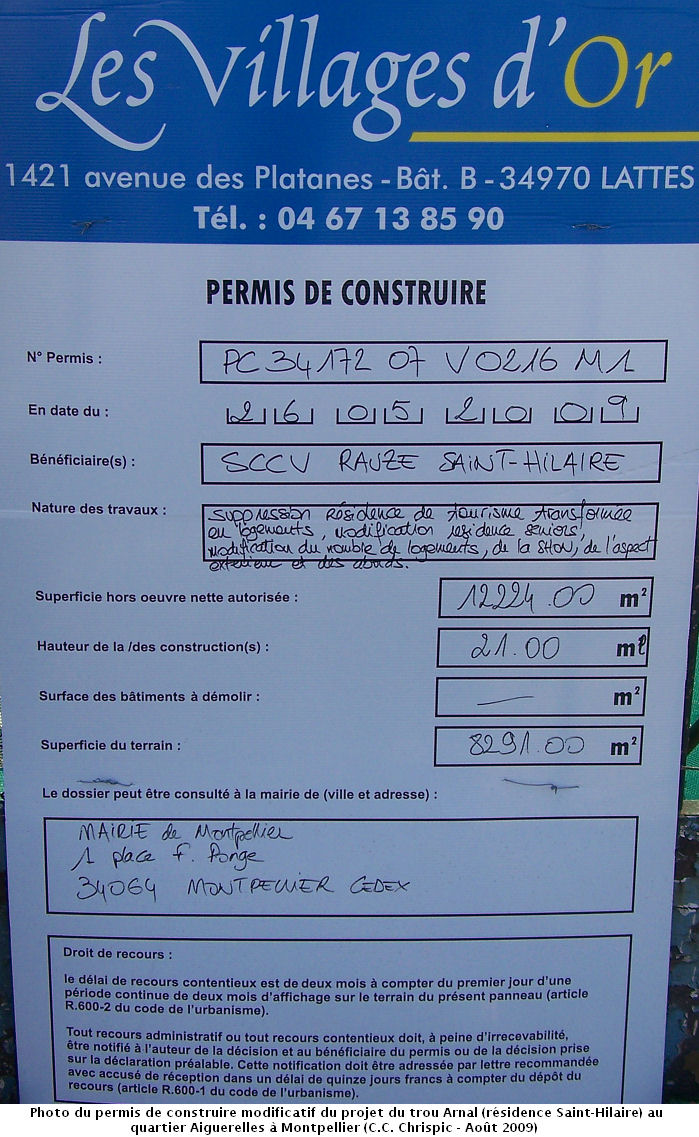 Les Villages d'Or
1421 avenue des Platanes - Bât. B - 34970 LATTES
Tél. : 04 67 13 85 90
PERMIS DE CONSTRUIRE
N° Permis : PC 34172 07 V0216 M1
En date du : 26 05 2009
Bénéficiaire(s) : SCCV RAUZE SAINT-HILAIRE
Nature des travaux : suppression résidence de tourisme transformée
en logements, modification résidence seniors,
modification du nombre de logements, de la SHON, de l'aspect
extérieur et des abords.
Superficie hors oeuvre nette autorisée : 12224.00 m²
Hauteur de la /des construction(s) : 21.00 mℓ
Surface des bâtiments à démolir : — m²
Superficie du terrain : 8291.00 m²
Le dossier peut être consulté à la mairie de (ville et adresse) :
MAIRIE de Montpellier
1 place F. Ponge
34064 MONTPELLIER CEDEX
Droit de recours :
le délai de recours contentieux est de deux mois à compter du premier jour d'une
période continue de deux mois d'affichage sur le terrain du présent panneau (article
R.600-2 du code de l'urbanisme).
Tout recours administratif ou tout recours contentieux doit, à peine d'irrecevabilité,
être notifié à l'auteur de la décision et au bénéficiaire du permis ou de la décision prise
sur la déclaration préalable. Cette notification doit être adressée par lettre recommandée
avec accusé de réception dans un délai de quinze jours francs à compter du dépôt du
recours (article R.600-1 du code de l'urbanisme).
Photo du permis de construire modificatif du projet du trou Arnal (résidence Saint-Hilaire) au
quartier Aiguerelles à Montpellier (C.C. Chrispic - Août 2009)